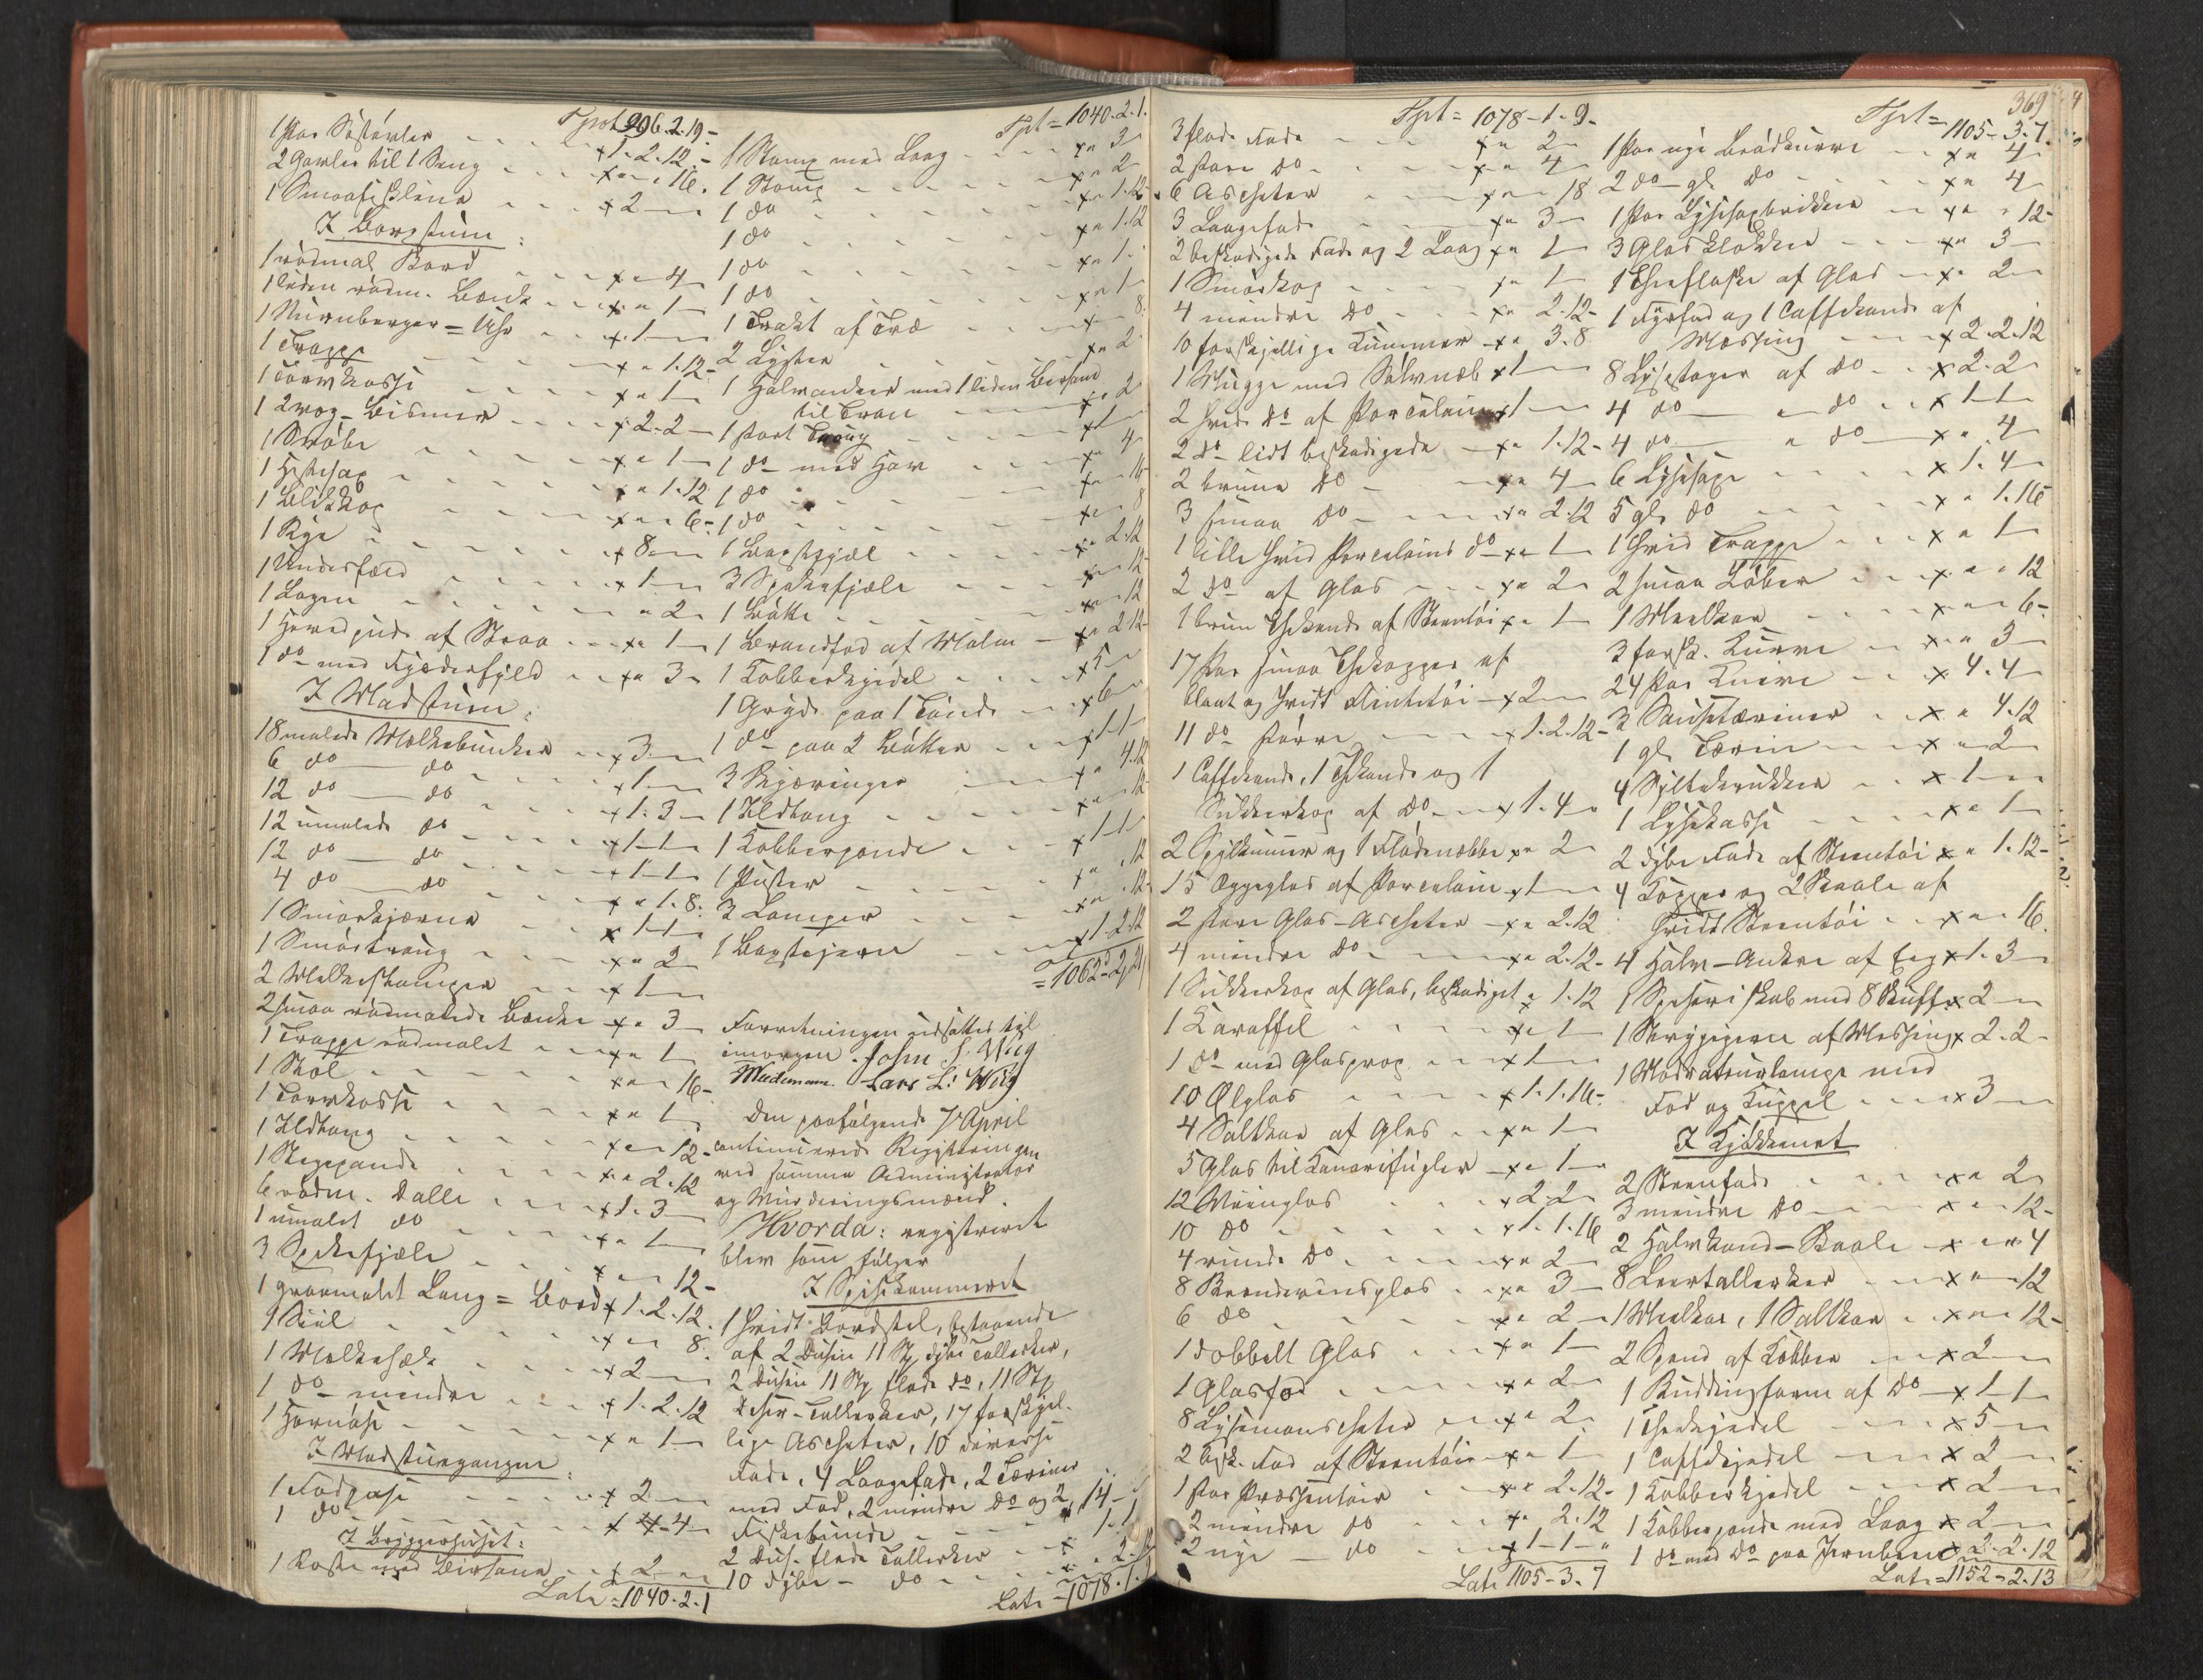 Tprt 996.2.19-
1 Par Søstøvler - - - x1-2-12.-
2 Gavler til 1 Seng - - x " " 16.
1 Smaafisklina - - - x 2 - "
I Borgstuen:
1 rødmal Bord - - - x " 4 -
1 liden rødm. Bænk - - x " 1 -
1 Nürnberger = Uhr - - x 1 - -
1 Trappe - - - x " 1.12.-
1 Tørvkasse - - - x " 1 -
1 2vog-Bismer - - - x 2-2 -
1 - - - x " 1 -
1 Hestesax - - - x " 1.12
1 Blikkop - - - x " " 6-
1 Rye - - - x 8 - "
1 Underfæld - - - x 1 - "
1 Lagen - - - " 2 -
1 Hovedpude af Straa - - x " 1 -
1 do med Fjæderfyld - - x " 3 -
I Madstuen:
18 malede Melkebunker - - x 3 - "
6 do - do - - - x 1 - -
12 do - do - - - x 1. 3 -
12 umalede do - - - x 1 - 1 -
12 do - do - - - x 1 - 1 -
4 do - do - - - x " 1. 8.
1 Smørkjærne - - - x 1 - 1 -
1 Smørtraug - - - x " 2 -
2 Melkestamper - - - x 1 - -
2 smaa rødmalede Bænke - x " 3 -
1 Trappe rødmalet - - - x " 1 -
1 Stol - - - x " " 16-
1 Tørvkasse - - - x " 1 -
1 Ildtang - - - x " " 12-
1 Stegepande - - - x " 2.12
6 rødm. Dalle - - - x 1. 3 -
1 umalet do - - - x " 1 -
3 Spekefjæle - - - x " " 12-
1 graamalet Lang = Bord x 1.2.12.
1 Siil - - - x " " 8.
1 Melkehæk - - - x 2 - -
1 do - mindre - - - x 1-2-12
1 - - - x " 1 -
I Madstuegangen:
1 - - - x 2 - "
1 do - - - x " 4 -
I Bryggerhuset:
1 Koste med Bersene - - x 2 - "
Late = 1040-2-1
Tprt = 1040-2-1.
1 Stamp med Laag - - - x " 3 -
1 Stamp - - - x " 2 -
1 do - - - x " 1-12-
1 do - - - x " 1.12
1 do - - - x " 1 -
1 do - - - x " 1 -
1 Trakt af Træ - - - x " " 8.
2 Lyster - - - x " 2 -
1 Halvanker med 1 liden Bersene
til Tran - - - x " 2 -
1 stort Traug - - - x 1 -
1 do - med Hav - - - x " 4
1 do - - - x " " 16
1 do - - - x " " 8
1 Bagstfjæl - - - x " 2.12
3 Spekefjæle - - - x " " 12-
1 Bøtte - - - x " " 12
1 Brandfod af Malm - x " 2.12-
1 Kobberkjedel - - - x 5 - "
1 Gryde paa 1 Tønde - - x 6 -
1 do paa 2 Bøtter - - - x 1-1
3 Kjæringer - - - x " 4.12
1 Ildtang - - - x " " 12-
1 Kobberpande - - - x 1-1
1 Puster - - - x " " 12
3 Lamper - - - x " " 12-
1 Bagstejern - - - x 1-2-12
= 1062-2-21
Forretningen udsattes til
imorgen. John S. Wiig
Lars L: Wiig
Den paafølgende 7 April
continuerede Registeringen
ved samme Administrator
og Vurderingsmænd.
Hvorda: registreret
blev som følger
I Spisekammeret
1 hvidt Bordstel, bestaaende
af 2 Dusin 11 St. dybe Tallerker,
2 Dusin 11 St. flade do, 11 St.
Deser-Tallerker, 17 forskjel-
lige Ascheter, 10 diverse
Fade, 4 Laagefade, 2 Teriner
med Fod, 2 mindre do og 2 14 -
Fiskebunde - - - x 1-1
2 Dus. flade Tallerker - - x " 2.12
10 dybe - do - - -
Late = 1078.1.9
Tprt = 1078-1-9-
3 flade Fade - - - x " 2 -
2 store do - - - x " 4 -
6 Ascheter - - - x " " 18
3 Laagefade - - - x " 3 -
2 beskadigede Fade og 2 Laag x " 1 -
1 Smørkop - - - x " 1 -
4 mindre do - - - x " 2-12-
10 forskjellige Kummer - x " 3.8
1 Mugge med Sølvnæb x 1 - -
2 hvide do af Porcelain x 1 - -
2 do lidt beskadigede - x " 1.12-
2 brune do - - - x " 4 -
3 smaa do - - - x " 2.12
1 lille hvid Porcelains do - x " 1 -
2 do af Glas - - - x " 2 -
1 brun Thekande af Steentøi x " 1 -
17 Par smaa Thekopper af
blaat og hvidt Flintetøi - x 2 - "
11 do større - - - x 1-2-12-
1 Caffekande, 1 Thekande og 1
Sukkerkop af do - - x 1. 4 "
2 Spylkummer og 1 Flødenæbbe x " 2 -
15 Æggeglas af Porcelain x 1 - -
2 store Glas-Ascheter - x " 2.12
4 mindre do - - - x " 2.12-
1 Sukkerkop af Glas, beskadiget x " 1.12
1 Karaffel - - - x " 1 -
1 do med Glasprop - - x 1 - -
10 Ølglas - - - x 1.1.16.
4 Saltkar af Glas - - x " 1 -
5 Glas til Kanarifugler - x " 1 -
12 Viinglas - - - x 2-2 -
10 do - - - x 1. 1.16
4 runde do - - - x " 2 -
8 Brændeviinsglas - - x " 3 -
6 do - - - x " 2 -
1 dobbelt Glas - - - x " 1 -
1 Glasfod - - - x " 2 -
8 Lysemanscheter - - x " 2 -
2 besk. Fad af Steentøi - x " 1 -
1 Par Præsenteer - - - x " 2.12-
2 mindre do - - - x " 2.12
2 nye - do - - - x 1-1 - "
Late 1105-3-7
369
Tprt = 1105-3-7.
1 Par nye Brødkurve - - x " 4
2 do - gl. do - - - x " 4
1 Par Lysesaxbrikker - - x " " 12-
3 Glas Klokker - - - x " 3 -
1 Theflaske af Glas - - x " 2 -
1 Fyrfad og 1 Caffekande af
Messing - - - x 2-2-12
8 Lysestager af do - - x 2-2 -
4 do - " do - - x 1-1 -
4 do - " do - x " 4 -
6 Lysesaxe - - - x 1. 4 -
5 gl. do - - - x " 1.16
1 hvid Trappe - - - x " 1 -
2 smaa Løber - - - x " " 12
1 Meelkar - - - x " " 6-
3 forsk. Kurve - - x " " 3 -
24 Par Knive - - - x 4. 4 -
3 Sauseteriner - - x " 4.12
1 gl. Terin - - - x " 2 -
4 Syltekrukker - - x 1 - -
1 Lysekasse - - - x " 1 -
2 dybe Fade af Steentøi x " 1.12-
4 Kopper og 2 Skaale af
hvidt Steentøi - - x " " 16.
4 Halv-Ankre af Eeg x 1. 3 -
1 Speseriskab med 8 Skuffer x 2 - -
1 Strygejern af Messing x 2-2 -
1 Moderateurlampe med
Fod og Kuppel - - - x 3 - -
I Kjøkkenet
2 Steenfade - - - x " 2 -
3 mindre do - - - x " " 12-
2 Halvkand-Skaale - x " " 4
8 Leertallerker - - x " " 12
1 Meelkar, 1 Saltkar - - x " " 12-
2 Spand af Kobber - - x 2 - -
1 Buddingform af do - x 1-1
1 Thekjedel - - x 5 - -
1 Caffekjedel - - - x 2 - -
1 Kobberkjedel - - - x 2 - -
1 Kobberpande med Laag x 2 - -
1 do med do paa Jernbeen x 2-2-12
Late = 1152-2-13